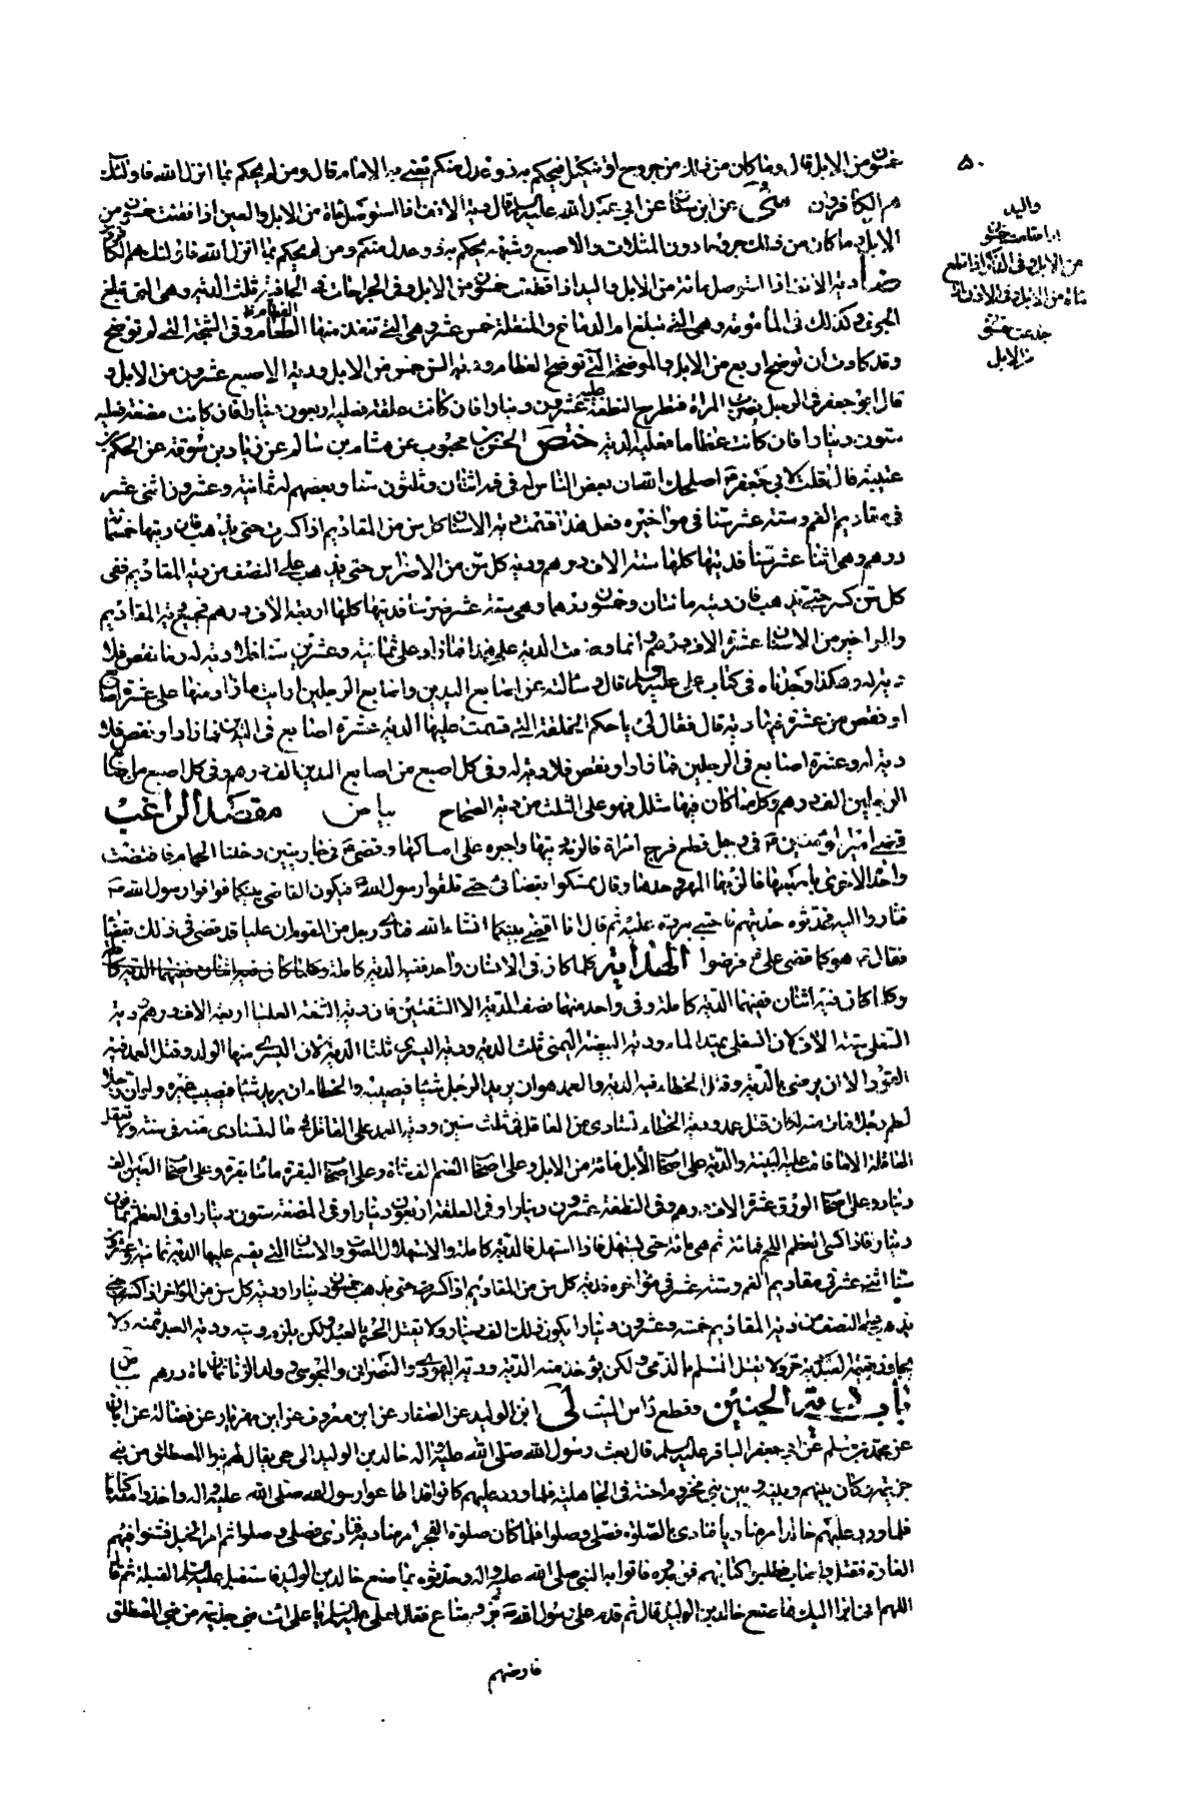 خمسون من الابل قال وما كان من ذلك من جروح او تنكيل فيحكم به ذو عدل منكم يعنى به الامام قال ومن لم يحكم بما انزل الله فاولئك
هم الكافرون عن ابن سنان عن ابي عبد الله عليه السلم قال دية الانف اذا استوصل مائة من الابل والعين اذا فقئت خمسون من
الابل وما كان من ذلك جروحا دون المثلات والاصبع وشبهه يحكم به ذو عدل منكم ومن لم يحكم بما انزل الله فاولئك هم الكافرون
دية الانف اذا استوصل مائة من الابل واليد اذا قطعت خمسون من الابل وفى الجراحات فى الجائفة ثلث الدية وهى التى تبلغ
الجوف وكذلك فى المأمومة وهى التى تبلغ ام الدماغ والمنقلة خمس عشر وهى التى تنفذ منها العظام وفى الشجة التى لم توضح
وقد كادت أن توضح اربع من الابل والموضحة التى توضح العظام ودية السن خمس من الابل ودية الاصبع عشرون من الابل و
قال ابو جعفر فى الرجل يضرب المراة فتطرح النطفة عليه عشرون دينارا فان كانت علقة فعليه اربعون دينارا فان كانت مضغة فعليه
ستون دينارا فان كانت عظاما فعليه الدية محبوب عن هشام بن سالم عن زياد بن سوقة عن الحكم بن
عتيبة قال قلت لابي جعفر اصلحك الله ان بعض الناس له فى فمه اثنتان وثلثون سنا وبعضهم له ثمانية وعشرون اثنى عشر
فى مقاديم الفم وستة عشر سنا فى مواخيره فعلى هذا قسمت دية الاسنان كل سن من المقاديم اذا كسرت حتى يذهب فان ديتها خمسمائة
درهم وهى اثنا عشر سنا فديتها كلها ستة الاف درهم ودية كل سن من الاضراس حتى يذهب على النصف من دية المقاديم ففى
كل سن كسر حتى يذهب فان ديته مائتان وخمسون درهما وهى ستة عشر ضرسا فديتها كلها اربعة الاف درهم فجميع دية المقاديم
والمواخير من الاسنان عشرة الاف درهم وانما وضعت الدية على هذا فما زاد على ثمانية وعشرين سنا فلا دية له وما نقص فلا
دية له وهكذا وجدناه فى كتاب على عليه السلم قال وسالته عن اصابع اليدين واصابع الرجلين ارايت ما زاد منها على عشرة اصابع
او نقص من عشرة فيها دية قال فقال لى يا حكم الخلقة التى قسمت عليها الدية عشرة اصابع فى اليدين فما زاد او نقص فلا
دية له وعشرة اصابع فى الرجلين فما زاد او نقص فلا دية له وفى كل اصبع من اصابع اليدين الف درهم وفى كل اصبع من اصابع
الرجلين الف درهم وكل ما كان فيها شلل فهو على الثلث من دية الصحاح بياض مقصد الراغب
قضى امير المؤمنين فى رجل قطع فرج امراة فالزمه ديتها واجبره على امساكها وقضى فى جاريتين دخلتا الحمام فافتضت
واخذ الاخرى باصبعها فالزمها المهر وحدها وقال تمسكوا بقضائى حتى تلقوا رسول الله فيكون القاضى بينكما فوافوا رسول الله
فثاروا اليه فحدثوه حديثهم فاحتبى ببردة عليه ثم قال انا اقضى بينكما انشاء الله فنادى رجل من القوم ان عليا قد قضى فى ذلك بقضاء
فقال هو كما قضى على فرضوا الهداية كلما كان فى الانسان واحد ففيه الدية كاملة
وكلما كان فيه اثنان ففيهما الدية كاملة وفى واحد منهما نصف الدية الا الشفتين فان دية الشفة العليا اربعة الاف درهم ودية
السفلى ستة الاف لان السفلى يمسك الماء ودية البيضة اليمنى ثلث الدية ودية اليسرى ثلثا الدية لان اليسرى منها الولد وقتل العمد فيه
القود الا ان يرضى بالدية وقتل الخطاء فيه الدية والعمد هو ان يريد الرجل شيئا فيصيبه والخطاء ان يريد شيئا فيصيب غيره ولو ان رجلا
لطم رجلا فمات منه لكان قتل عمد ودية الخطاء تستادى من العاقلة فى ثلث سنين ودية العمد على القاتل فى ماله تستادى منه فى سنة ولا تعقل
العاقلة الا ما قامت عليه البينة والدية على اصحاب الابل مائة من الابل وعلى اصحاب الغنم الف شاة وعلى اصحاب البقرة مائتا بقرة وعلى اصحاب العين الف
دينار وعلى اصحاب الورق عشرة الاف درهم وفى النطفة عشرون دينارا وفى العلقة اربعون دينارا وفى المضغة ستون دينارا وفى العظم ثمانون
دينارا فاذا كسى العظم اللحم فمائة ثم هى مائة حتى يستهل فاذا استهل فالدية كاملة والاستهلال الصوت والاسنان التى يقسم عليها الدية ثمانية وعشرون
سنا اثنى عشر فى مقاديم الفم وستة عشر فى مواخره فدية كل سن من المقاديم اذا كسر حتى يذهب خمسون دينارا ودية كل سن من المواخر اذا كسر حتى
يذهب على النصف من دية المقاديم خمسة وعشرون دينارا يكون ذلك الف دينار ولا يقتل الحر بالعبد ولكن يلزم ديته ودية العبد ثمنه ولا
يجاوز بقيمة العبد دية حر ولا يقتل المسلم بالذمى ولكن يؤخذ منه الدية ودية اليهودى والنصرانى والمجوسى وولد الزنا ثمان مائة درهم بياض
باب دية الجنين وقطع راس الميت ابن الوليد عن الصفار عن ابن معروف عن ابن مهزيار عن فضالة عن ابان
عن محمد بن مسلم عن ابي جعفر الباقر عليه السلم قال بعث رسول الله صلى الله عليه واله خالد بن الوليد الى حى يقال لهم بنو المصطلق من بنى
جزيمة وكان بينهم وبينه وبين بنى مخزوم احنة فى الجاهلية فلما ورد عليهم كانوا قد اطاعوا رسول الله صلى الله عليه واله واخذوا منه كتابا
فلما ورد عليهم خالد امر مناديا فنادى بالصلوة فصلى وصلوا فلما كان صلوة الفجر امر مناديه فنادى فصلى وصلوا ثم امر الخيل فشنوا فيهم
الغارة فقتل واصاب فطلبوا كتابهم فوجدوه فاتوا به النبى صلى الله عليه واله وحدثوه بما صنع خالد بن الوليد فاستقبل عليه السلم القبلة ثم قال
اللهم انى ابرا اليك مما صنع خالد بن الوليد قال ثم قدم على رسول الله تبر ومتاع فقال لعلى عليه السلم يا على ائت بنى جذيمة من بنى المصطلق
فارضهم
٥٠
واليد
اذا قطعت خمسون
من الابل وفى الذكر اذا قطع
مائة من الابل وفى الاذن اذا
جدعت خمسون
من الابل